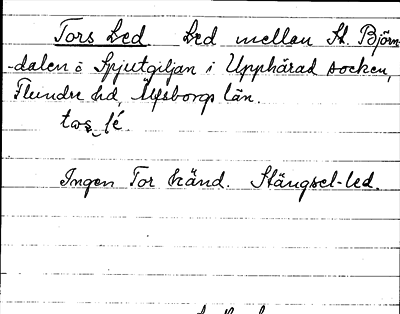 Tors Led Led mellan St. Björn-
-dalen o Spjutgiljan i Upphärad socken,
Flundre hd, Älvsborgs län.
tɷs lé.
Ingen Tor känd. Stängsel-led.